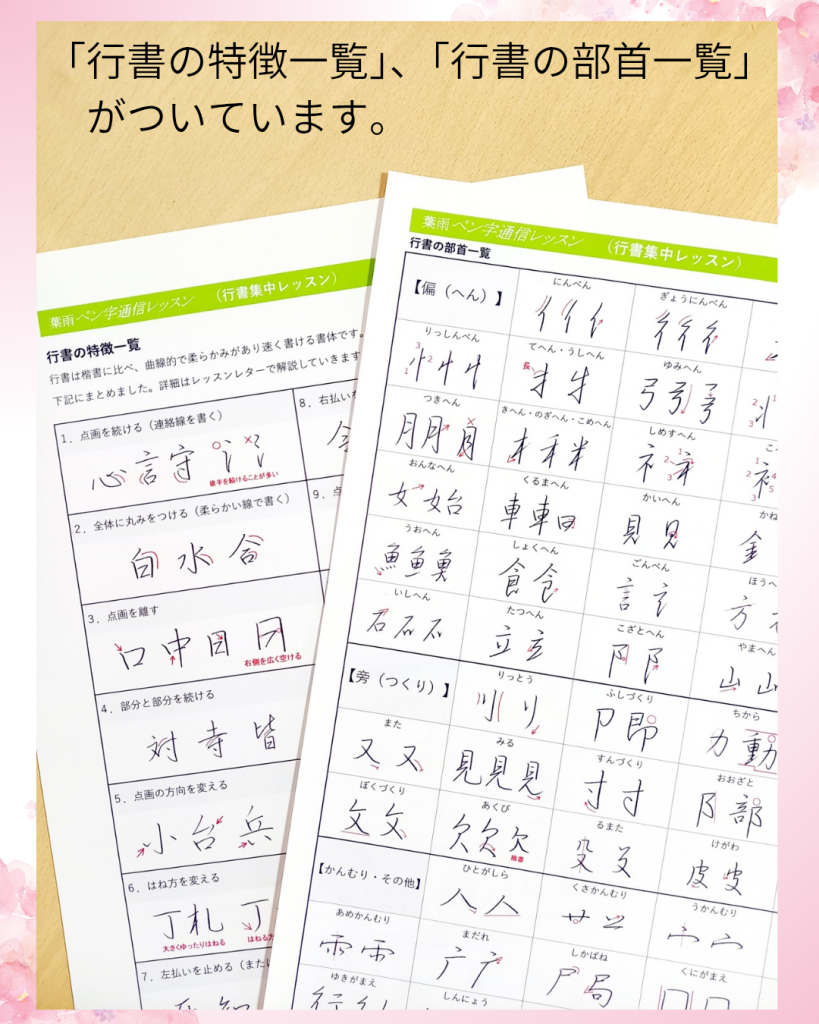 「行書の特徴一覧」、「行書の部首一覧」
がついています。
葉雨 ペン字通信レッスン (行書集中レッスン)
行書の特徴一覧
行書は楷書に比べ、曲線的で柔らかみがあり速く書ける書体です。
下記にまとめました。詳細はレッスンレターで解説していきます
1. 点画を続ける(連絡線を書く)
心 言 守
後半を続けることが多い
2. 全体に丸みをつける(柔らかい線で書く)
白 水 合
3. 点画を離す
口 中 目
右側を広く空ける
4. 部分と部分を続ける
対 寺 皆
5. 点画の方向を変える
小 台 兵
6. はね方を変える
丁 札 丁
大きくゆったりはねる
はねる
7. 左払いを止める(また
8. 右払いを
9. 点
葉雨 ペン字通信レッスン (行書集中レッスン)
行書の部首一覧
【偏(へん)】
にんべん
ぎょうにんべん
りっしんべん
てへん・うしへん
長く
ゆみへん
つきへん
月 月 月
きへん・のぎへん・こめへん
しめすへん
おんなへん
女 始
くるまへん
車 車
かいへん
見 見
かね
金
うおへん
魚 魚 魚
しょくへん
食
ごんべん
言
ほうへ
方
いしへん
石 石 石
たつへん
立 立
こざとへん
やまへん
山 山
【旁(つくり)】
りっとう
ふしづくり
即
ちから
力 動
また
又 又
みる
見 見 見
すんづくり
寸 寸
おおざと
部
ぼくづくり
攵 攵
あくび
欠 欠 欠
楷書
るまた
殳 殳
けがわ
皮 皮
【かんむり・その他】
ひとがしら
くさかんむり
うかんむり
あめかんむり
まだれ
しかばね
尸 局
くにがまえ
ゆきがまえ
しんにょう